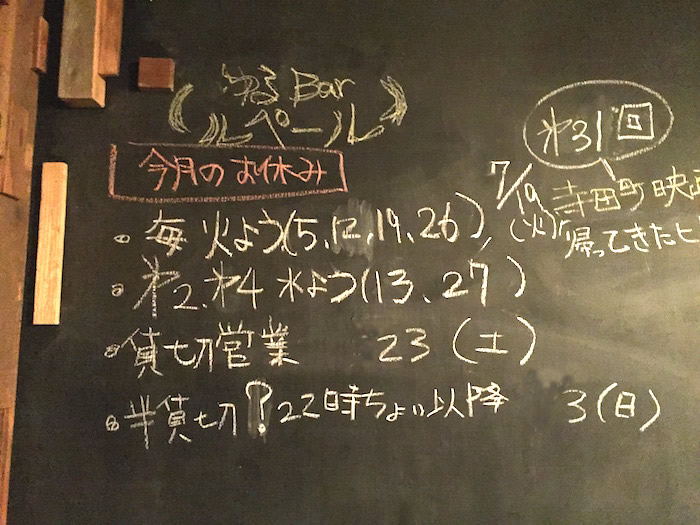 ゆる Bar
ルペール
今月のお休み
・毎 火よう(5,12,19,26)
・第2、第4 水よう(13、27)
・貸切営業 23(土)
・半貸切?22時ちょい以降 3(日)
第31回
7/19(火)
寺田町映画
帰ってきたヒ